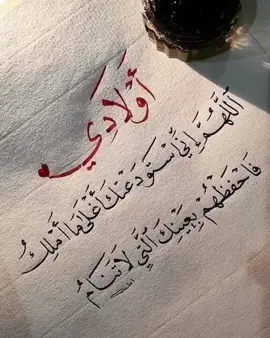 أَوْلَادِي
اَللّٰهُمَّ إِنِّي أَسْتَوْدِعُكَ أَغْلَىٰ مَا أَمْلِكُ
فَاحْفَظْهُمْ بِعَيْنِكَ الَّتِي لَا تَنَامُ